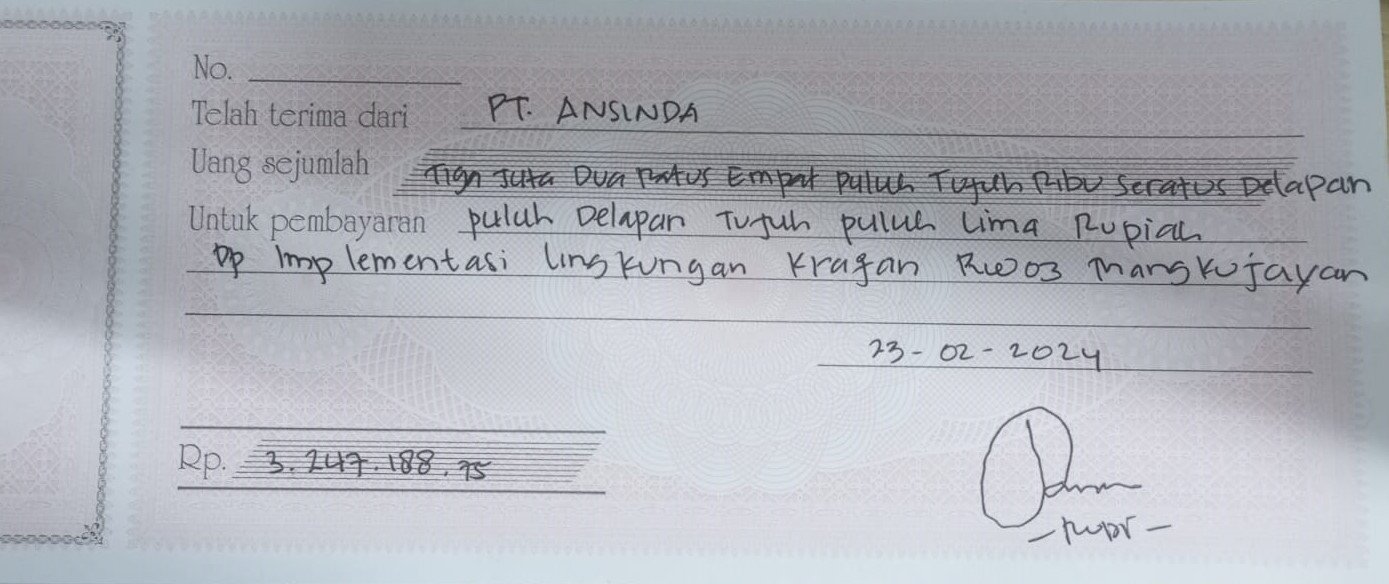 No.
Telah terima dari PT. ANSINDA
Uang sejumlah Tiga Juta Dua Ratus Empat puluh Tujuh Ribu Seratus Delapan
Untuk pembayaran puluh Delapan Tujuh puluh Lima Rupiah
Dp Implementasi lingkungan Krajan RW 03 Mangkujayan
23-02-2024
Rp. 3.247.188.75